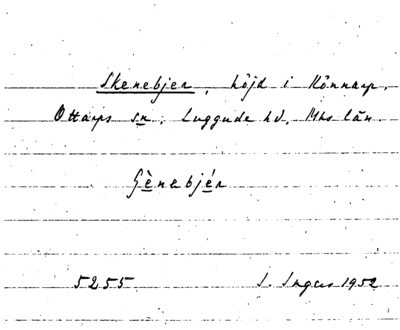 Skenebjer, höjd i Könnarp,
Ottarps sn. Luggude hd, Mhs län.
Gènebjér
5255 S. Ingers 1952